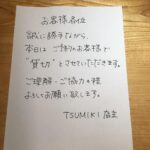 お客様各位
誠に勝手ながら、
本日は ご予約のお客様で
"貸切"とさせていただきます。
ご理解・ご協力の程
よろしくお願い致します。
TSUMIKI 店主